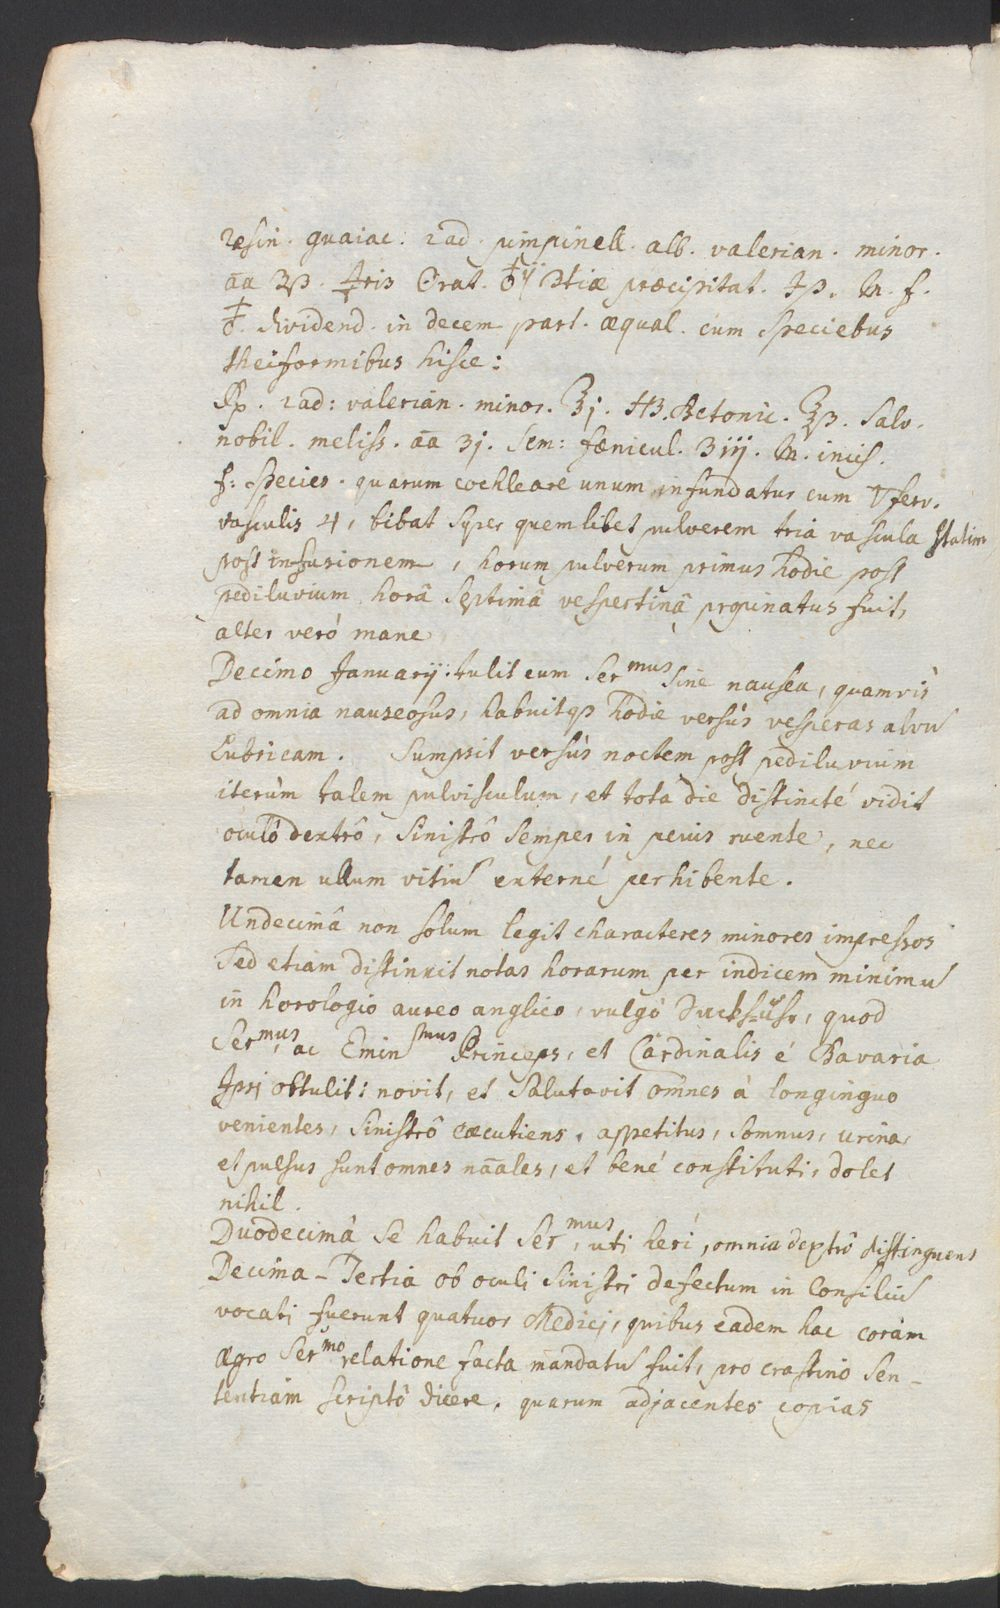 resin. guaiac: rad. pimpinell. alb. valerian. minor.
āā ʒβ. præcipitat. M. f.
dividend. in decem part. æqual. cum speciebus
theiformibus hisce:
Rp. rad: valerian. minor. ℥j. HB. Betonic. ℥β. salv.
nobil. meliss. āā ʒj. sem: fœnicul. ʒiij. M. incis.
f: species. quarum cochleare unum infundatur cum ▽ ferv.
vasculis 4, bibat super quemlibet pulverem tria vascula statim
post infusionem, horum pulverum primus hodie post
pediluvium horâ septimâ vespertinâ propinatus fuit,
alter veró mane
Decimo Januarij: tulit eum Ser mus sine nausea, quamvis
ad omnia nauseosus, habuitqȝ hodie versùs vesperas alvū
lubricam. Sumpsit versùs noctem post pediluvium
iterùm talem pulvisculum, et tota die distincté vidit
oculô dextrô, sinistrô semper in peius ruente, nec
tamen ullum vitiū externé perhibente.
Undecimâ non solùm legit characteres minores impressos
sed etiam distinxit notas horarum per indicem minimū
in horologio aureo anglico, vulgò Suckhsuhr, quod
Ser mus, ac Emin mus Princeps, et Cardinalis é Bavaria
Ipsi obtulit: novit, et salutavit omnes à longinquo
venientes, sinistrô cæcutiens. appetitus, somnus, urina,
et pulsus sunt omnes nāales, et bené constituti, dolet
nihil.
Duodecimâ se habuit Ser mus, uti heri, omnia dextrô distinguens
Decima-Tertia ob oculi sinistri defectum in Consiliū
vocati fuerunt quatuor Medici, quibus eadem hac coràm
ægro Ser mo relatione facta mandatū fuit, pro crastino sen-
tentiam scriptô dicere, quarum adjacentes copias